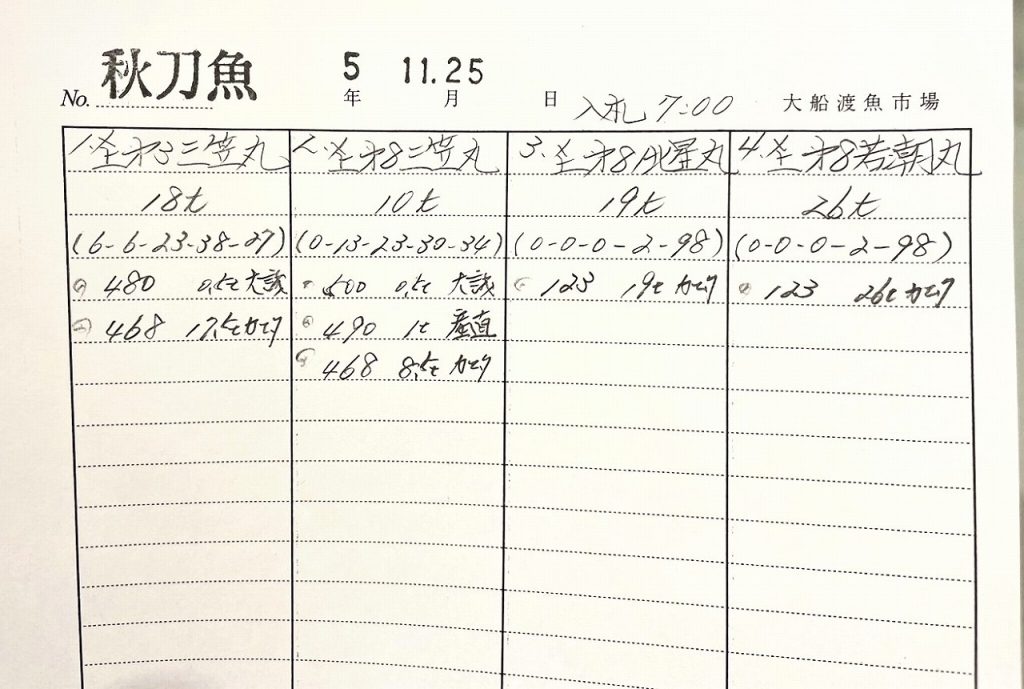 No. 秋刀魚 5年 11.月25日 入札 7:00 大船渡魚市場
1. 第3三笠丸
18t
(6-6-23-38-27)
480 0.5t 大誠
468 17.5t カモク
2. 第8三笠丸
10t
(0-13-23-30-34)
500 0.5t 大誠
490 1t 産直
468 8.5t
3. 第8 星丸
19t
(0-0-0-2-98)
123 19t
4. 第8若潮丸
26t
(0-0-0-2-98)
123 26t